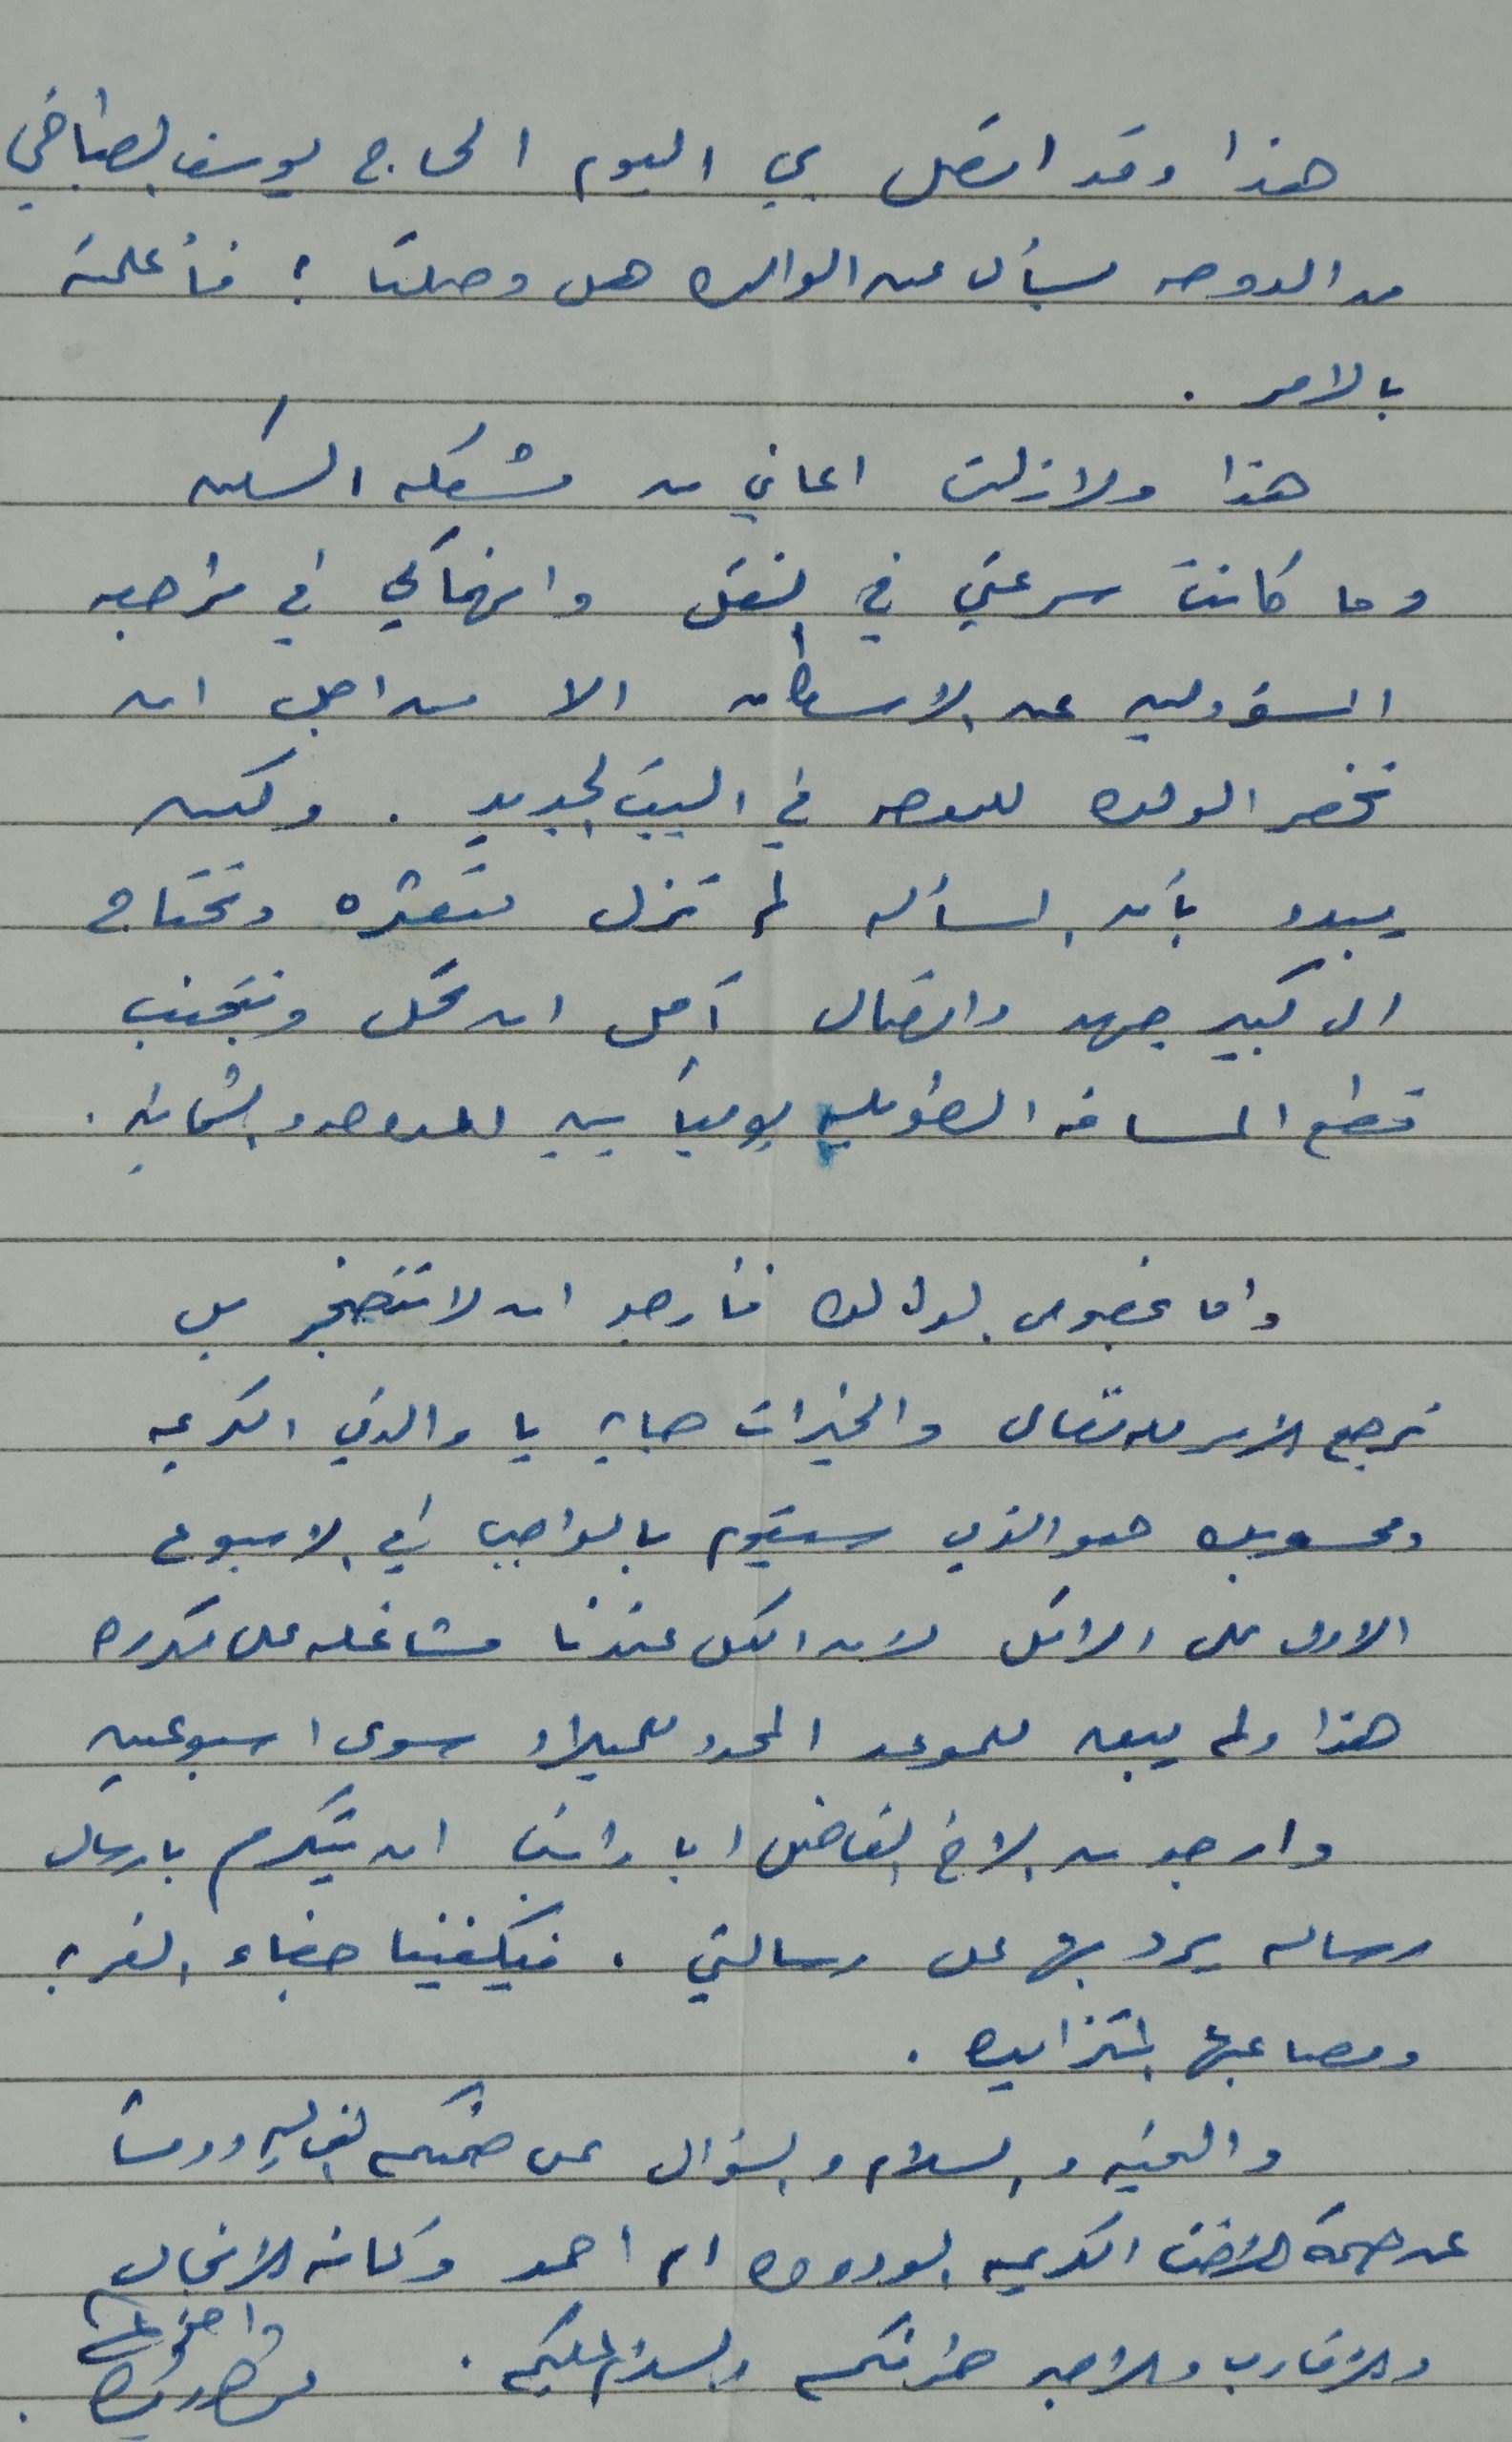 هذا وقد اتصل بي اليوم الحاج يوسف
من الدوحه يسأل عن الوالده هل وصلت ؟ فأعلمته
بالامر .
هذا ولازلت اعاني من مشكله السكن
وما كانت سرعتي في النقل وانهماكي في مراجعه
المسؤولين عن الاسكان الا من اجل ان
تحضر الوالده للدوحه في البيت الجديد . ولكن
يبدو بأن المسأله لم تزل متعثره وتحتاج
الى كبير جهد واتصال آمل ان تحل ونتجنب
قطع المسافه الطويله يومياً بين الدوحه والشمانيه .
واما بخصوص الوالده فأرجو ان لا تتضجر بل
ترجع الامر لله تعالى والخيرات جايه يا والدتي الكريمه
ومحسوبك هو الذي سيقوم بالواجب في الاسبوع
الاول على الاقل لان الكل عندنا مشاغله
هذا ولم يبق للموعد المحدد للميلاد سوى اسبوعين
وارجو من الاخ الفاضل ابا راتب ان يتكرم بارسال
رساله يرد بها على رسالتي . فيكفينا جفاء الغربه
ومصاعبها المتزايده .
والتحيه والسلام والسؤال عن صحتكم الغاليه ودمتم
عن صحة الاخت الكريمه الودوده ام احمد وكافه الانجال
والاقارب والاحبه حضرتكم والسلام عليكم .